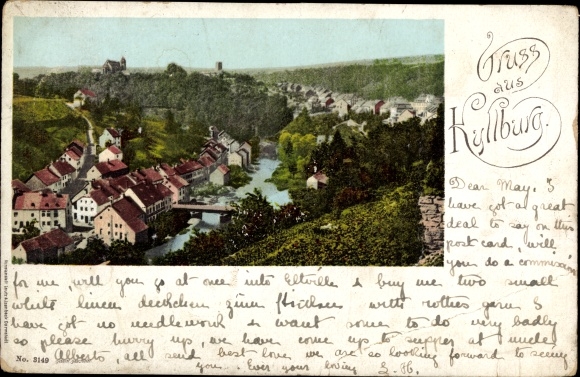 Gruss
aus
Kyllburg.
Dear May. I
have got a great
deal to say on this
post card, will
you do a commission
for me, will you go at once into Eltville & buy me two small
white linen deckchen zum sticken with rothes garn I
have got no needlework & want some to do very badly
so please hurry up, we have come up to supper at uncle
Alberts, all send best love, we are so looking forward to seeing
you. Ever your loving
No. 3149